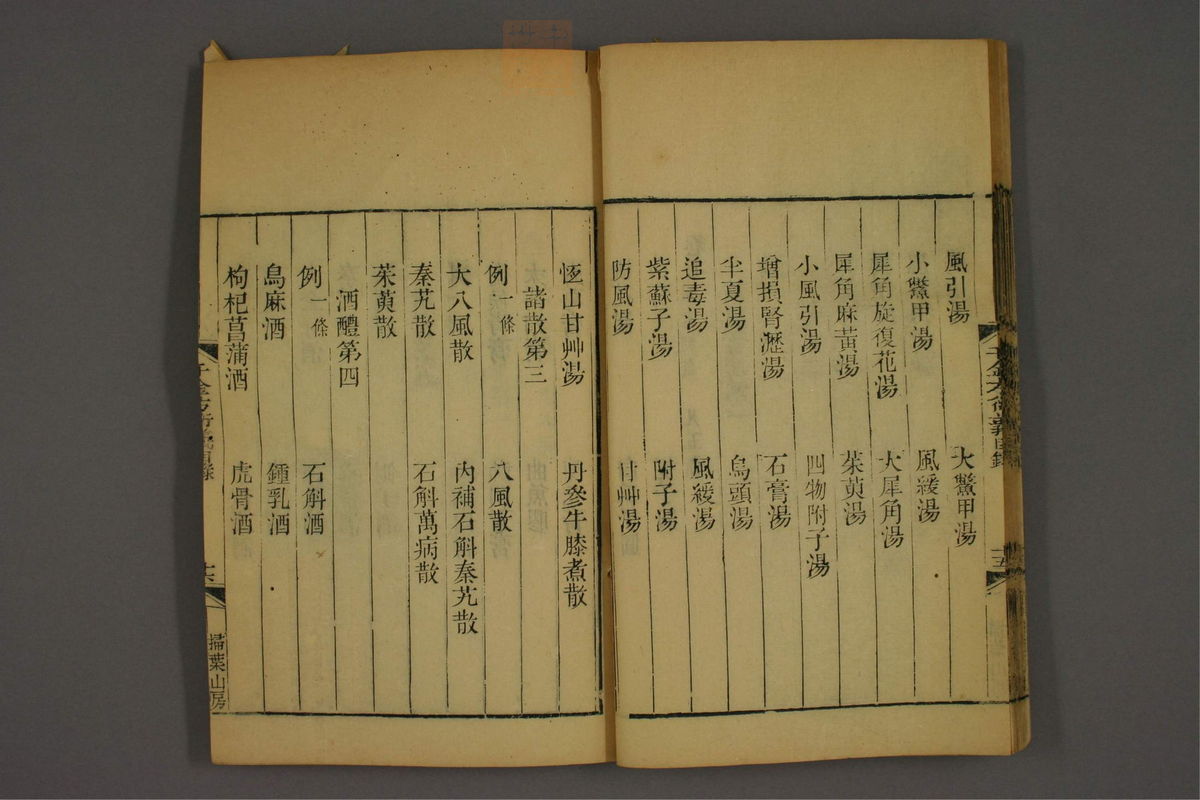 風引湯 大鱉甲湯
小鱉甲湯 風緩湯
犀角旋復花湯 大犀角湯
犀角麻黃湯 茱萸湯
小風引湯 四物附子湯
增損腎瀝湯 石膏湯
半夏湯 烏頭湯
追毒湯 風緩湯
紫蘇子湯 附子湯
防風湯 甘艸湯
恆山甘艸湯 丹參牛膝煮散
諸散第三
例一條 八風散
大八風散 內補石斛秦艽散
秦艽散 石斛萬病散
茱萸散
酒醴第四
例一條 石斛酒
烏麻酒 鍾乳酒
枸杞菖蒲酒 虎骨酒
千金方衍義目錄 十六
掃葉山房